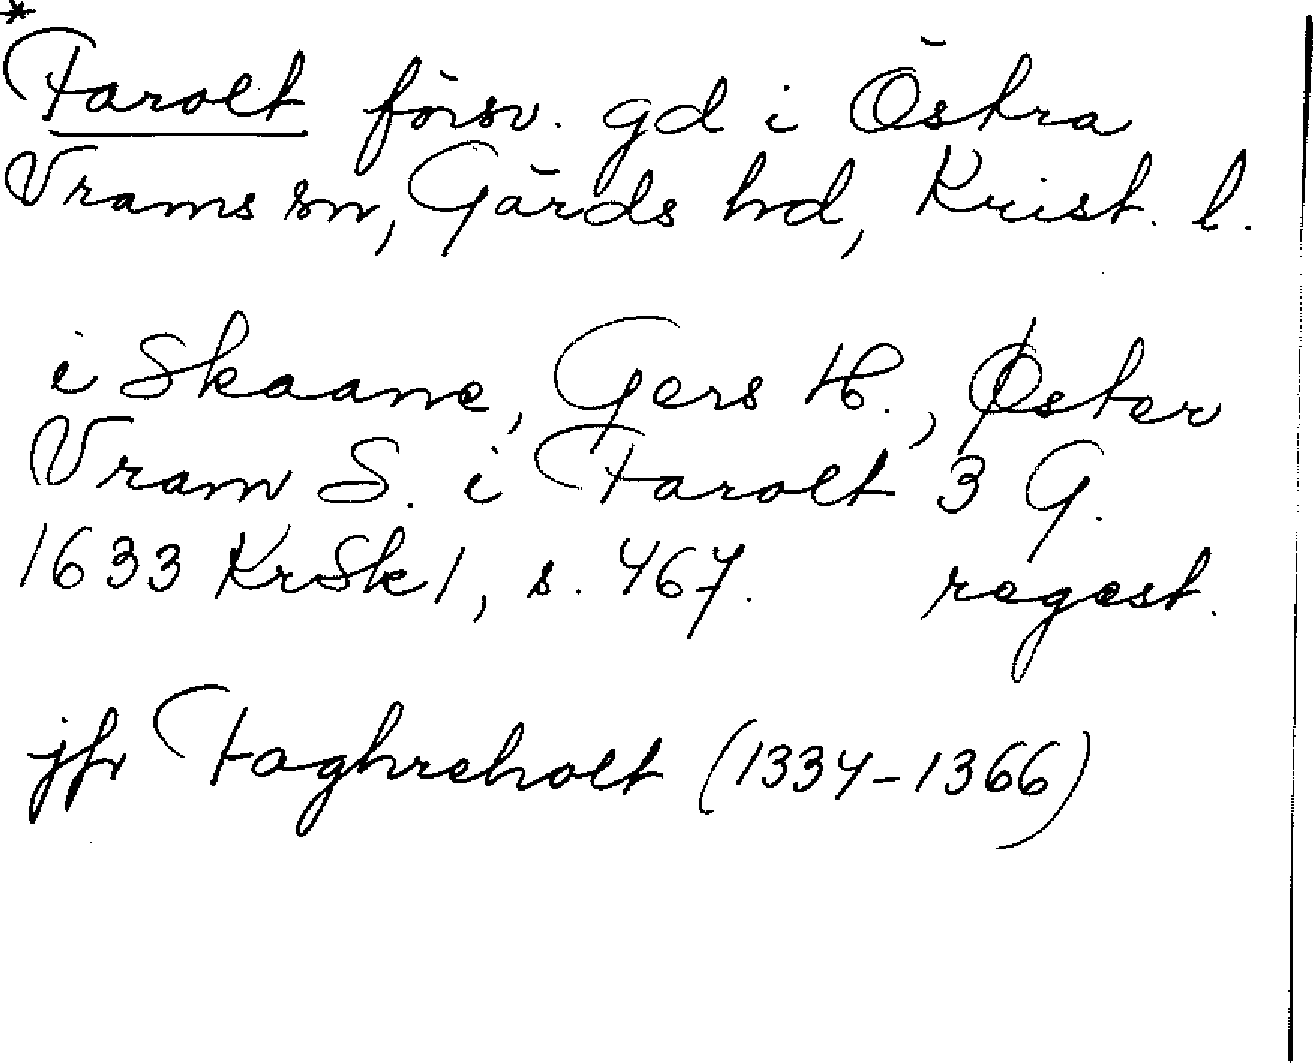 *
Farolt försv. gd i Östra
Vrams sn, Gärds hd, Krist. l.
i Skaane, Gers H., Øster
Vram S. i Farolt 3 G.
1633 KrSk 1, s. 467. regest.
jfr Faghreholt (1334-1366)